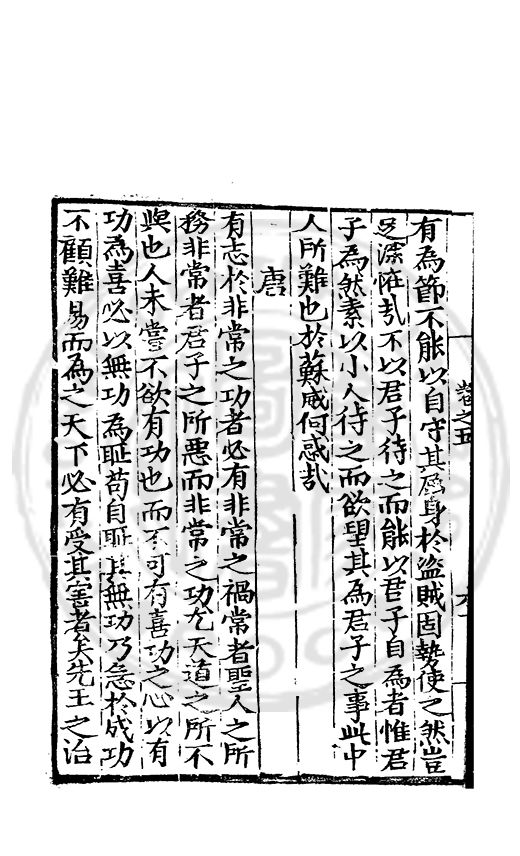 卷之五
六
有為節不能以自守其為身於盜賊固勢使之然豈
足深怪哉不以君子待之而能以君子自為者惟君
子為然素以小人待之而欲望其為君子之事此中
人所難也於蘇威何惑哉
唐
有志於非常之功者必有非常之禍常者聖人之所
務非常者君子之所惡而非常之功尤天道之所不
與也人未嘗不欲有功也而不可有喜功之心以有
功為喜必以無功為恥苟自恥其無功乃急於成功
不顧難易而為之天下必有受其害者矣先王之治